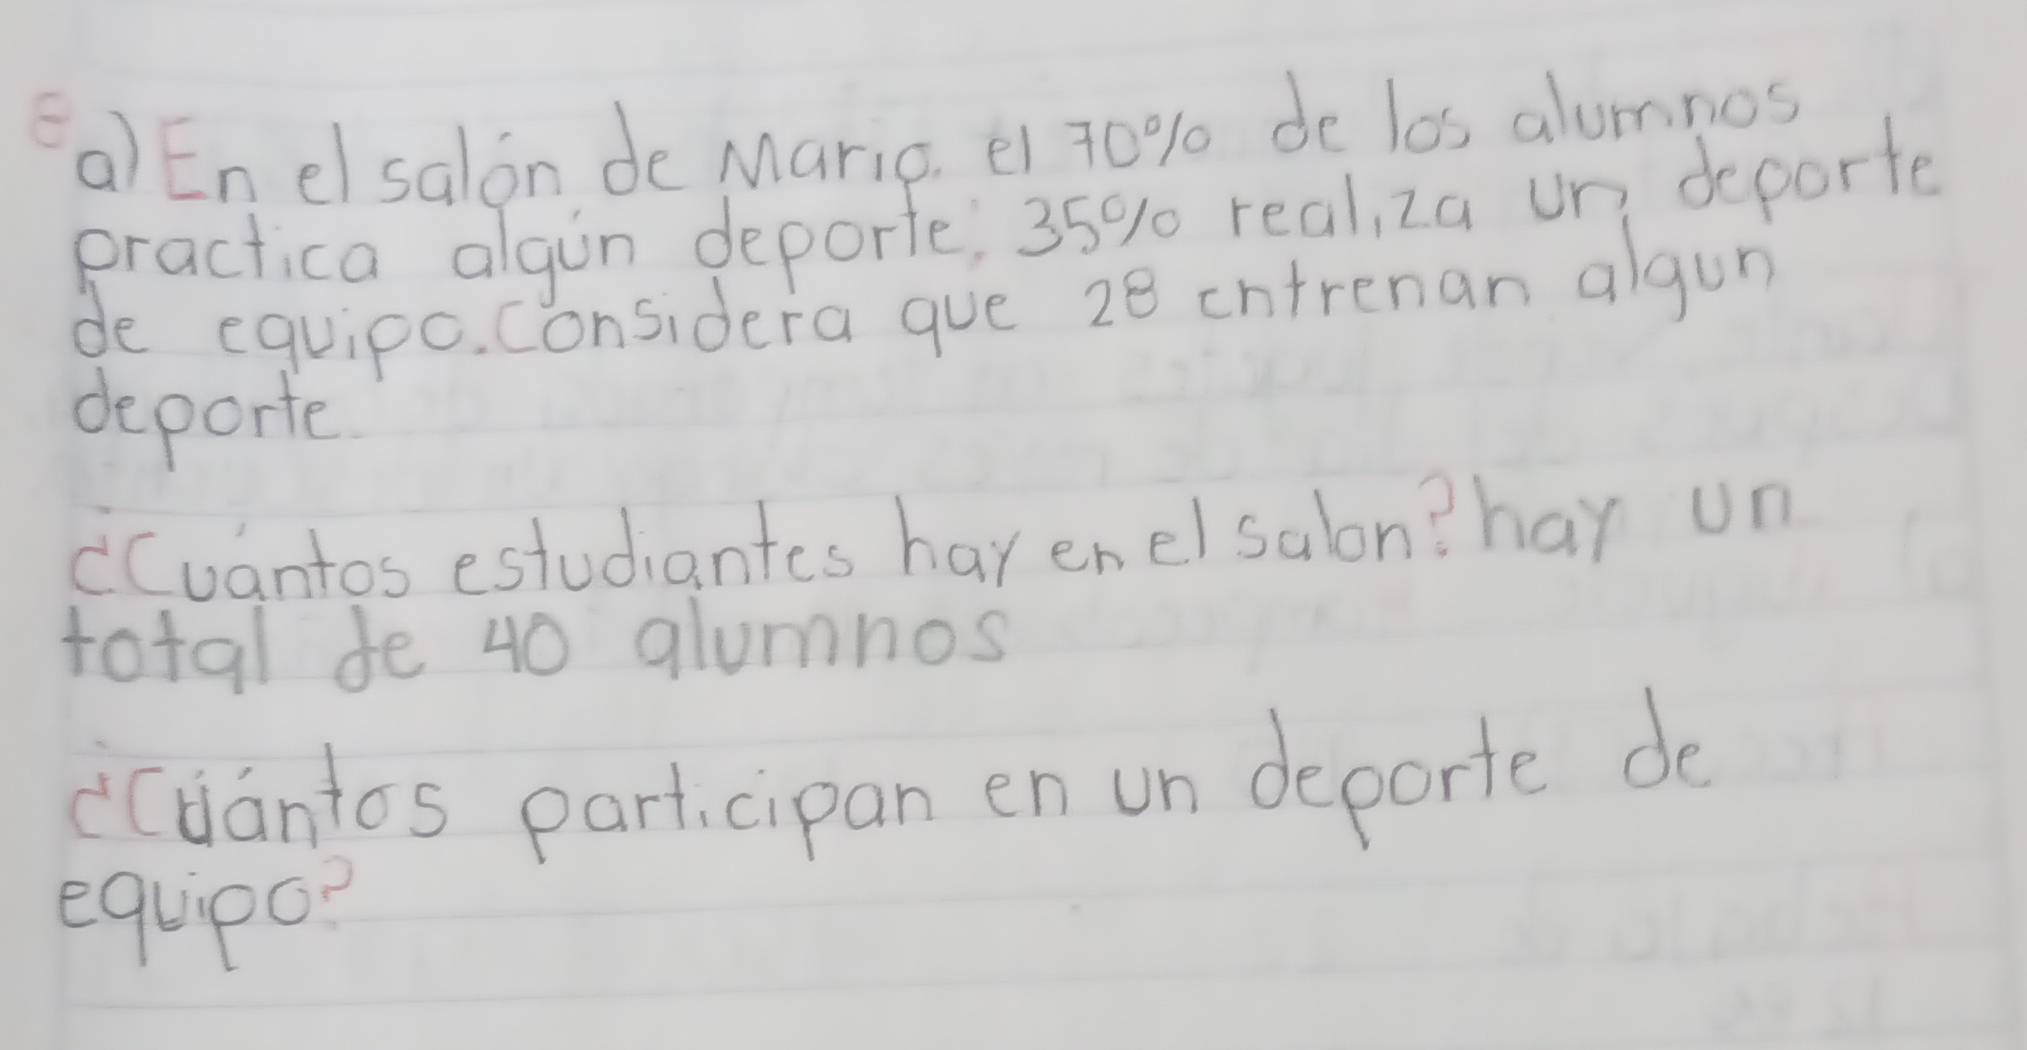 a) En el salón de Mario. el 70% de los alumnos
practica algún deporte; 35% realiza un deporte
de equipo. Considera que 28 entrenan algun
deporte.
¿Cuántos estudiantes hay en el salon? hay un
total de 40 alumnos
¿Cuántos participan en un deporte de
equipo?